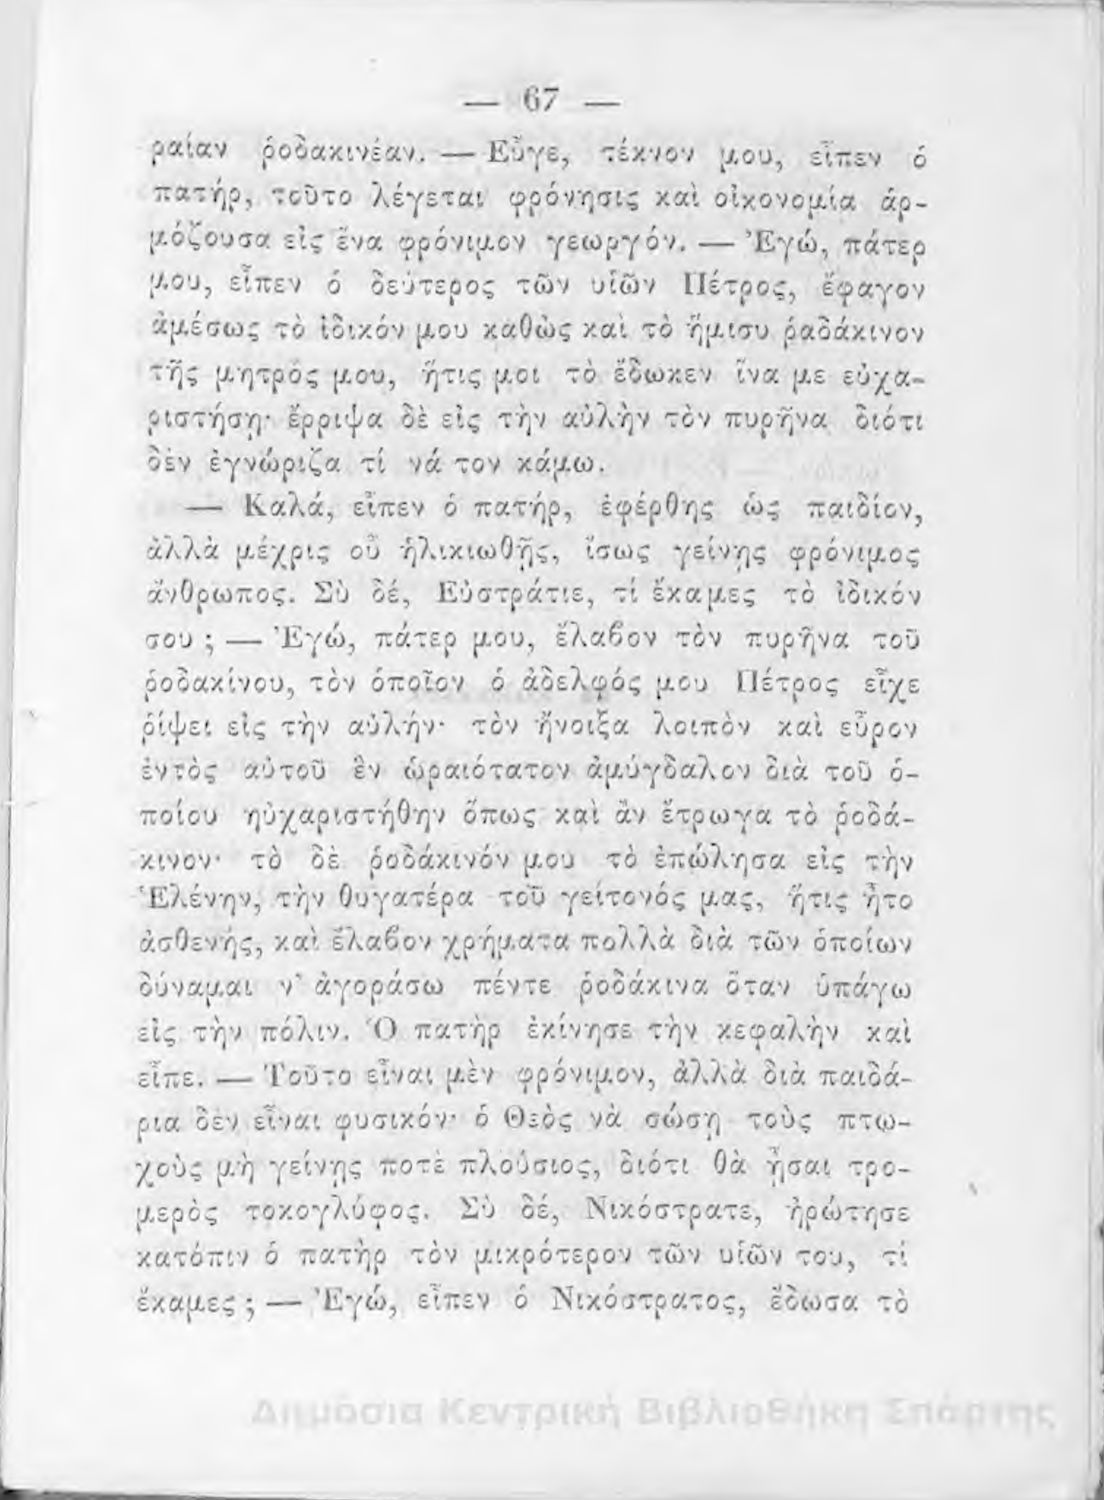 — 67 —
ραίαν ῥοδακινέαν. — Εὖγε, τέκνον μου, εἶπεν ὁ
πατήρ, τοῦτο λέγεται φρόνησις καὶ οἰκονομία ἁρ-
μόζουσα εἰς ἕνα φρόνιμον γεωργόν. — Ἐγώ, πάτερ
μου, εἶπεν ὁ δεύτερος τῶν υἱῶν Πέτρος, ἔφαγον
ἀμέσως τὸ ἰδικόν μου καθὼς καὶ τὸ ἥμισυ ῥαδάκινον
τῆς μητρός μου, ἥτις μοι τὸ ἔδωκεν ἵνα με εὐχα-
ριστήσῃ· ἔρριψα δὲ εἰς τὴν αὐλὴν τὸν πυρῆνα διότι
δὲν ἐγνώριζα τί νά τον κάμω.
— Καλά, εἶπεν ὁ πατήρ, ἐφέρθης ὡς παιδίον,
ἀλλὰ μέχρις οὗ ἡλικιωθῇς, ἴσως γείνῃς φρόνιμος
ἄνθρωπος. Σὺ δέ, Εὐστράτιε, τί ἔκαμες τὸ ἰδικόν
σου ; — Ἐγώ, πάτερ μου, ἔλαβον τὸν πυρῆνα τοῦ
ῥοδακίνου, τὸν ὁποῖον ὁ ἀδελφός μου Πέτρος εἶχε
ῥίψει εἰς τὴν αὐλήν· τὸν ἤνοιξα λοιπὸν καὶ εὗρον
ἐντὸς αὐτοῦ ἓν ὡραιότατον ἀμύγδαλον διὰ τοῦ ὁ-
ποίου ηὐχαριστήθην ὅπως καὶ ἂν ἔτρωγα τὸ ῥοδά-
κινον· τὸ δὲ ῥοδάκινόν μου τὸ ἐπώλησα εἰς τὴν
Ἑλένην, τὴν θυγατέρα τοῦ γείτονός μας, ἥτις ἦτο
ἀσθενής, καὶ ἔλαβον χρήματα πολλὰ διὰ τῶν ὁποίων
δύναμαι ν' ἀγοράσω πέντε ῥοδάκινα ὅταν ὑπάγω
εἰς τὴν πόλιν. Ὁ πατὴρ ἐκίνησε τὴν κεφαλὴν καὶ
εἶπε. — Τοῦτο εἶναι μὲν φρόνιμον, ἀλλὰ διὰ παιδά-
ρια δὲν εἶναι φυσικόν· ὁ Θεὸς νὰ σώσῃ τοὺς πτω-
χοὺς μὴ γείνῃς ποτὲ πλούσιος, διότι θὰ ᾖσαι τρο-
μερὸς τοκογλύφος. Σὺ δέ, Νικόστρατε, ἠρώτησε
κατόπιν ὁ πατὴρ τὸν μικρότερον τῶν υἱῶν του, τί
ἔκαμες ; — Ἐγώ, εἶπεν ὁ Νικόστρατος, ἔδωσα τὸ
Δημόσια Κεντρική Βιβλιοθήκη Σπάρτης